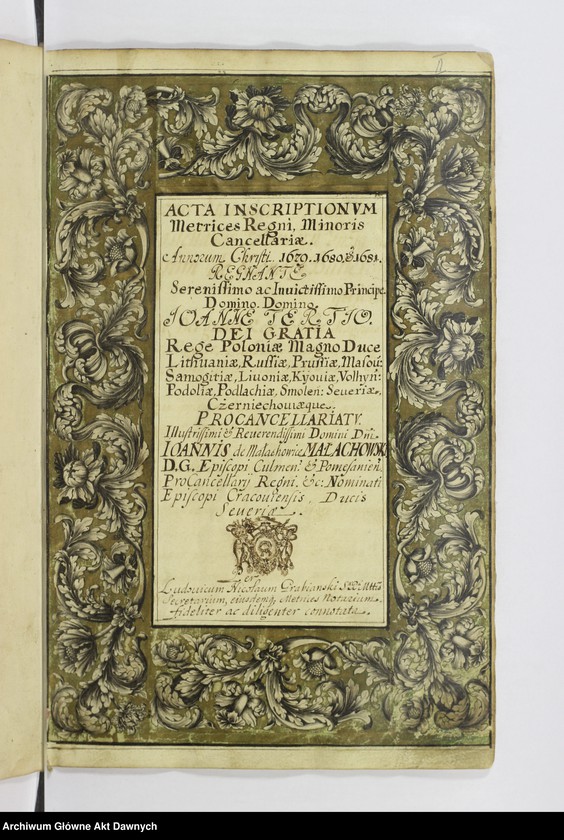 ACTA INSCRIPTIONVM
Metrices Regni, Minoris
Cancellariæ.
Annorum Christi. 1679. 1680. & 1681.
REGNANTE
Serenissimo ac Invictissimo Principe
Domino. Domino.
IOANNE TERTIO.
DEI GRATIA
Rege Poloniæ Magno Duce
Lithuaniæ, Russiæ, Prussiæ, Masou:
Samogitiæ, Livoniæ, Kyouiæ, Volhyn:
Podoliæ, Podlachiæ, Smolen: Severiæ,
Czerniechouiæque.
PROCANCELLARIATV.
Illustrissimi & Reverendissimi Domini Dni.
IOANNIS de Malachowice MALACHOWSKI
D.G. Episcopi Culmen: & Pomesanien:
ProCancellarij Regni. &c: Nominati
Episcopi Cracouiensis, Ducis
Severiæ.
Ludovicum Nicolaum Grabianski
Secretarium, eiusdemq Metrices Notarium.
fideliter ac diligenter connotata.
Archiwum Główne Akt Dawnych